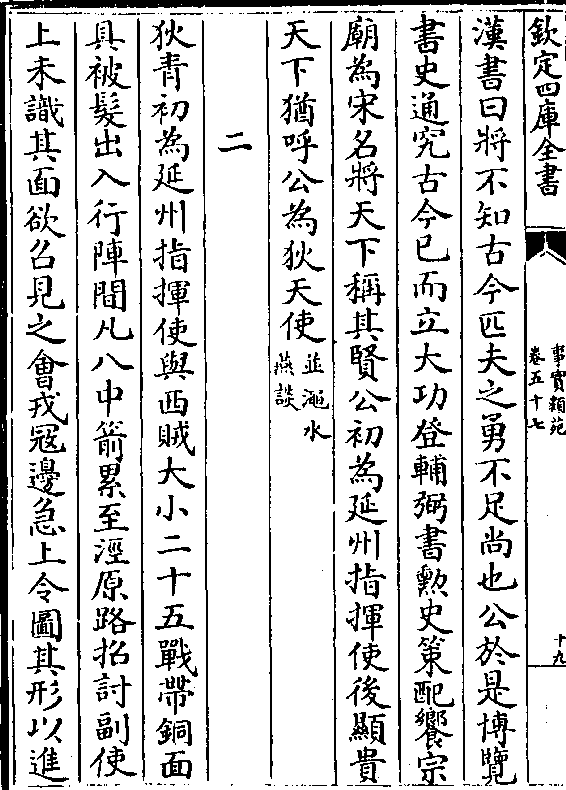 欽定四庫全書
事實類苑
卷五十七
十九
漢書曰將不知古今匹夫之勇不足尚也公於是博覽
書史通究古今已而立大功登輔弼書勲史策配饗宗
廟為宋名將天下稱其賢公初為延州指揮使後顯貴
天下猶呼公為狄天使
並澠水
燕談
二
狄青初為延州指揮使與西賊大小二十五戰帶銅面
具被髮出入行陣間凡八中箭累至涇原路招討副使
上未識其面欲召見之會戎冦邊急上令圖其形以進